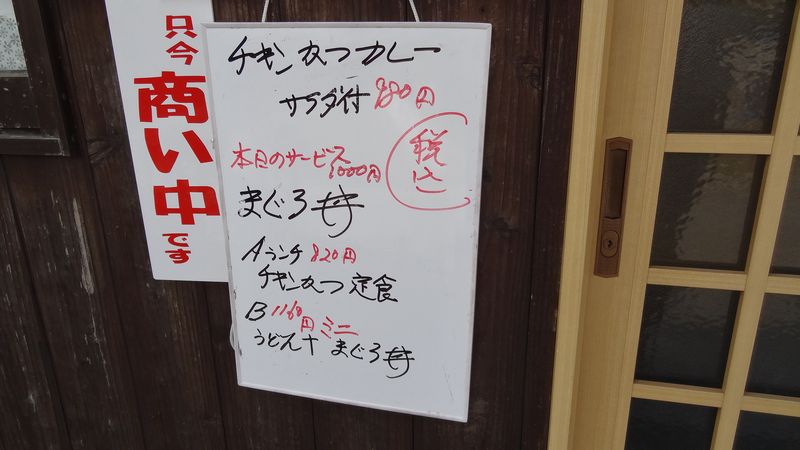 只今
商い中
です
チキンかつカレー
サラダ付 980円
税込
本日のサービス
1000円
まぐろ丼
Aランチ 820円
チキンかつ定食
B 1160円 ミニ
うどん+まぐろ丼